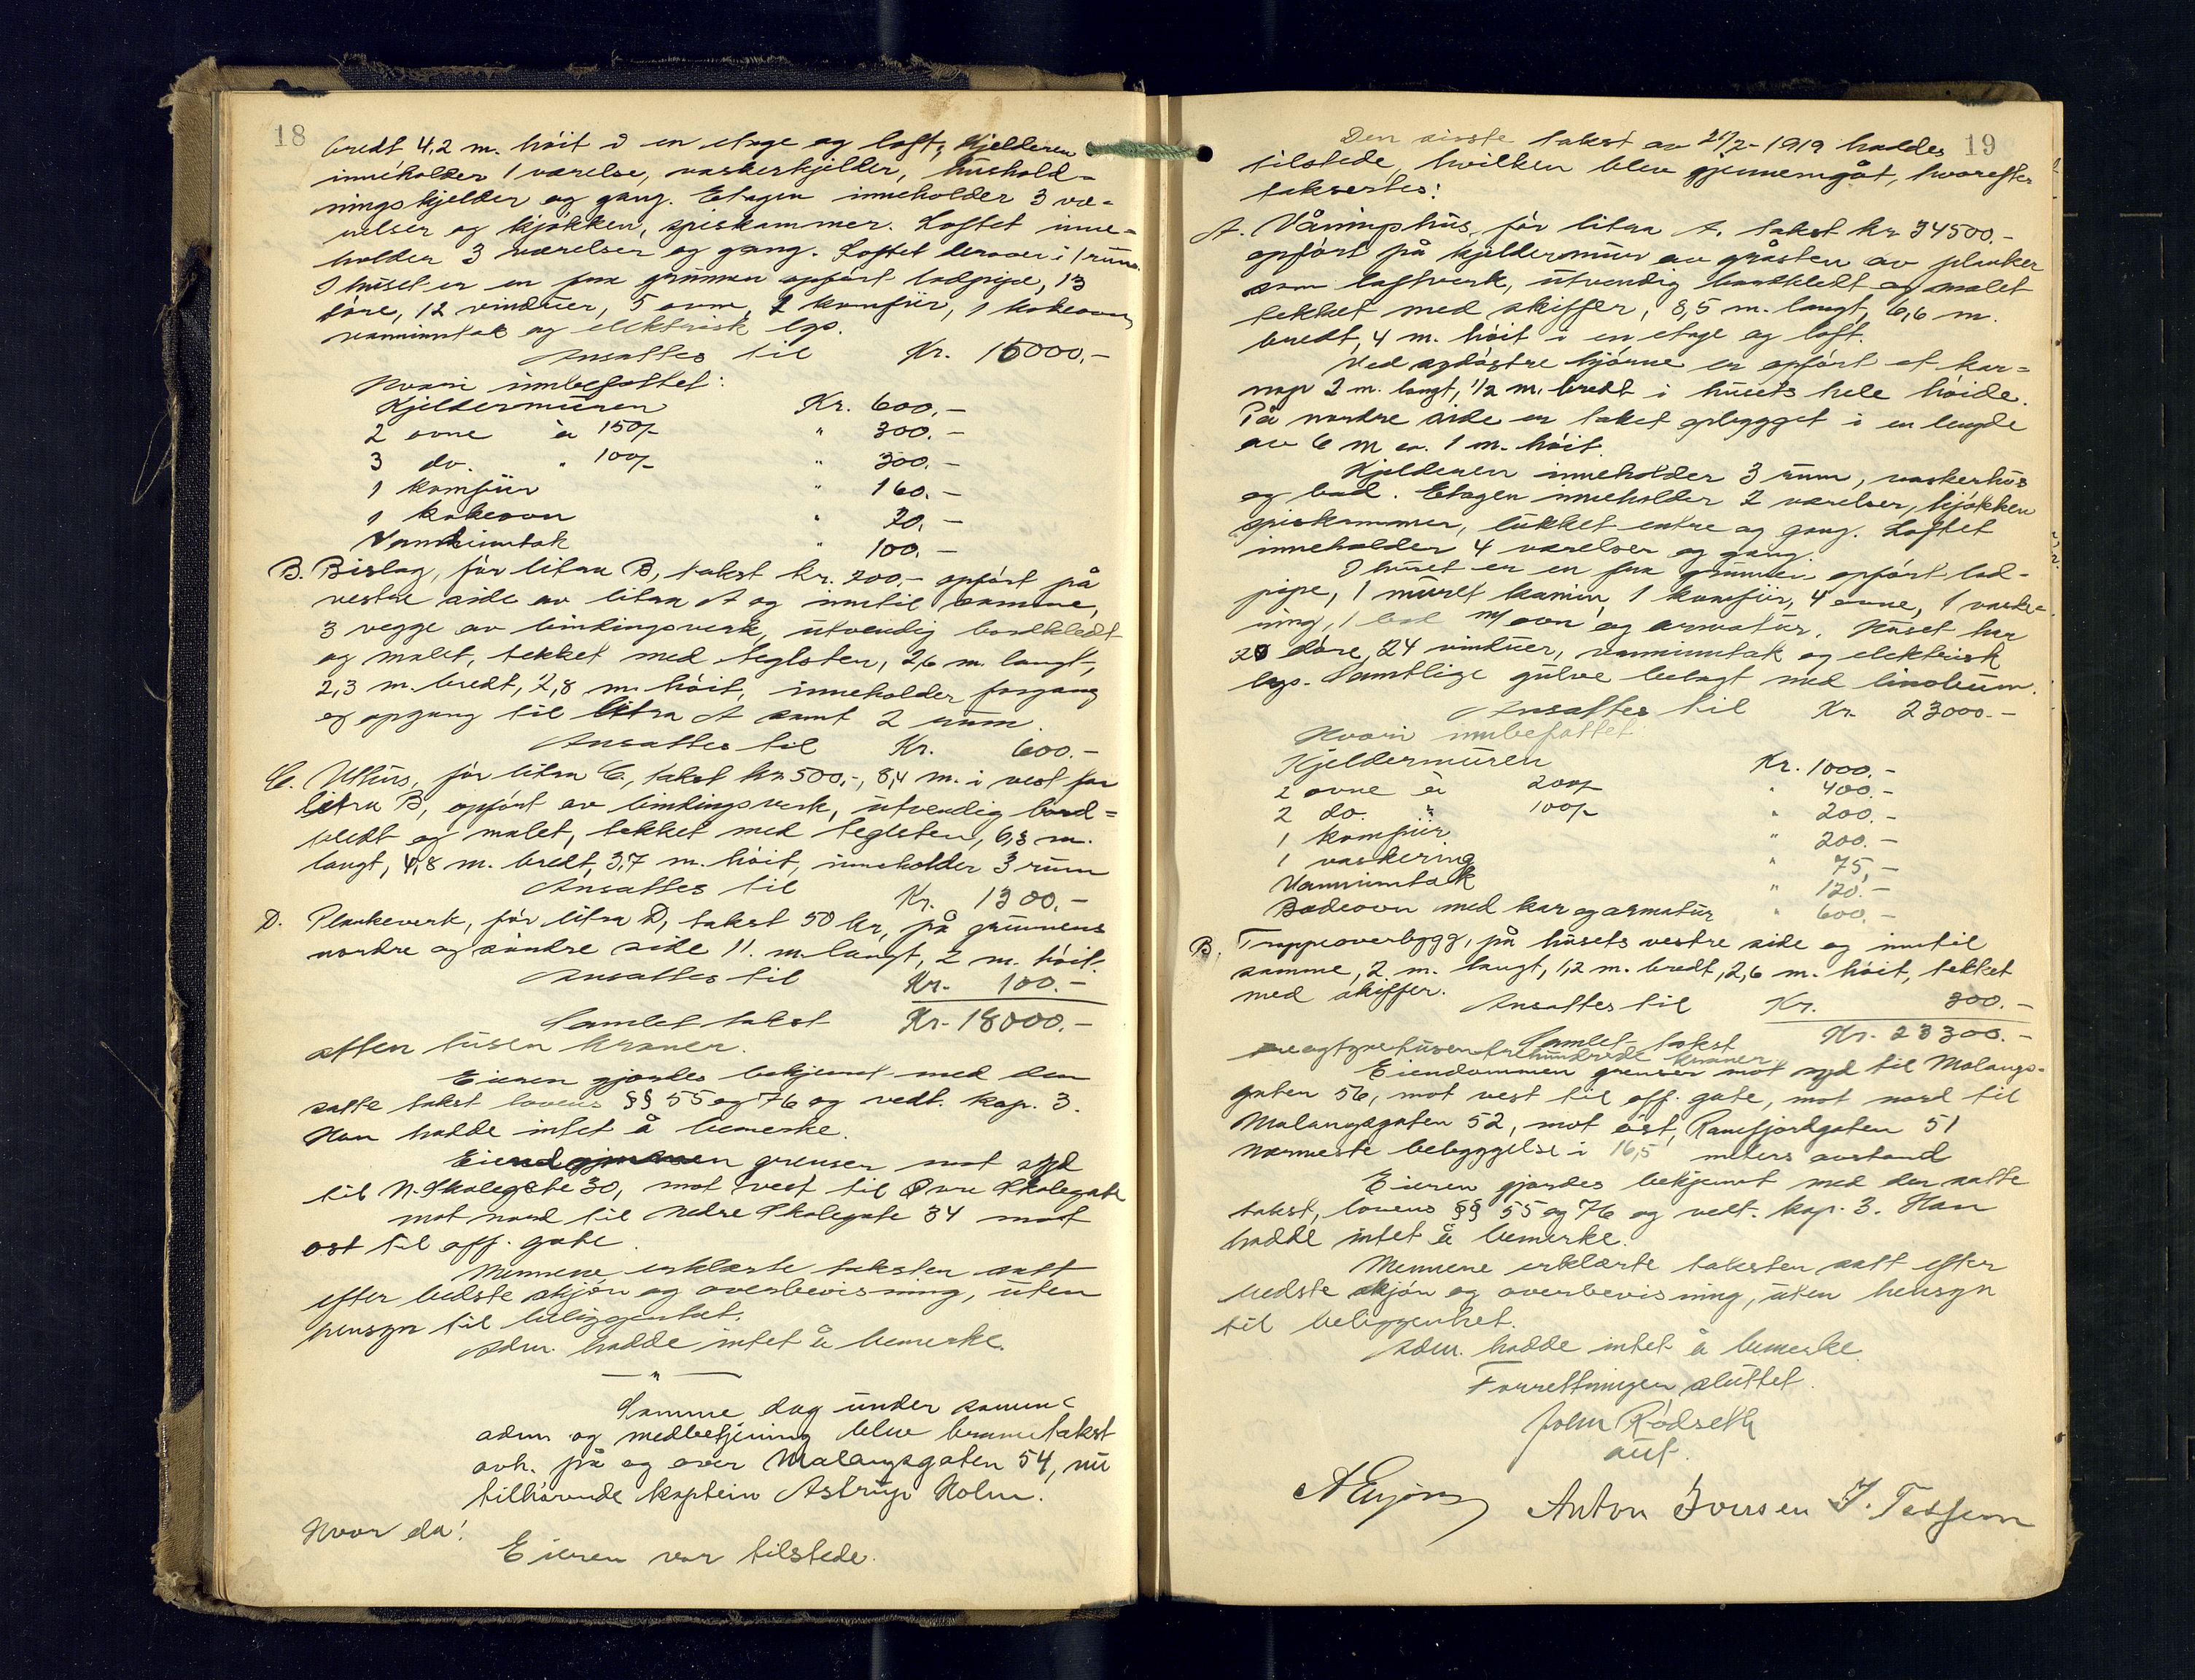 18
bredt 4,2 m. höit i en etage og loft, Kjelderen
inneholder 1 værelse, vaskerkjelder, hushold-
ningskjelder og gang. Etagen inneholder 3 væ-
relser og kjøkken, spiskammer. Loftet inne-
holder 3 værelser og gang. Loftet derover i 1 rum.
I huset er en fra grunnen opført lodpipe, 13
döre, 12 vinduer, 5 ovne, 1 komfür, 1 kokeovn,
vanninntak og elektrisk lys.
Ansattes til Kr. 16000.-
Hvori innbefattet:
Kjeldermüren Kr. 600.-
2 ovne à 150/- " 300.-
3 do. " 100/- " 300.-
1 komfür " 160.-
1 kokeovn " 70.-
Vanninntak " 100.-
B. Bislag, för litra B, takst kr. 700.- opfört på
vestre side av litra A og inntil samme,
3 vegge av bindingsverk, ütvendig bordkledt
og malet, tekket med teglsten, 2,6 m. langt,
2,3 m. bredt, 2,8 m. höit, inneholder forgang
og opgang til litra A samt 2 rüm.
Ansattes til Kr. 600.-
C. Uthus, för litra C, takst kr. 500.-, 8,4 m. i vest for
litra B, opfört av bindingsverk, ütvendig bord-
kledt og malet, tekket med teglsten, 6,3 m.
langt, 4,8 m. bredt, 3,7 m. höit, inneholder 3 rüm
Ansattes til Kr. 1300.-
D. Plankeverk, för litra D, takst 50 kr, på grunnens
nordre og söndre side 11. m. langt, 2 m. höit.
Ansattes til Kr. 100.-
Samlet takst Kr. 18000.-
atten tüsen kroner.
Eieren gjordes bekjennt med den
satte takst lovens §§ 55 og 76 og vedt. kap. 3.
Han hadde intet å bemerke.
Eiendommen grenser mot syd
til N. Skolegate 30, mot vest til Övre Skolegate
mot nord til Nedre Skolegate 34 mot
öst til off. gate.
Mennene erklærte taksten satt
efter bedste skjön og overbevisning, üten
hensyn til beliggenhet.
Adm. hadde intet å bemerke.
— " —
Samme dag ünder samme
adm og medbetjening blev branntakst
avh. på og over Malangsgaten 54, nü
tilhörende kaptein Astrüp Holm.
Hvor da:
Eieren var tilstede.
19
Den sisste takst av /2-1919 haddes
tilstede, hvilken blev gjennemgåt, hvorefter
taksertes:
A. Våningshüs, för litra A. takst kr 34500.-
opfört på kjeldermür av gråsten av planker
som laftverk, ütvendig bordkledt og malet
tekket med skiffer, 8,5 m. langt, 6,6 m.
bredt, 4 m. höit i en etage og loft.
Ved sydöstre hjörne er opfört et kar-
nap 2 m. langt, 1/2 m. bredt i hüsets hele höide.
På nordre side er taket opbygget i en lengde
av 6 m ca. 1 m. höit.
Kjelderen inneholder 3 rüm, vaskerhüs
og bad. Etagen inneholder 2 værelser, kjökken
spiskammer, lükket entre og gang. Loftet
inneholder 4 værelser og gang.
I hüset er en fra grunnen opfört lod-
pipe, 1 müret kamin, 1 komfür, 4 ovne, 1 vaske-
ring, 1 bad m/ ovn og armatür. Hüset har
20 döre, 24 vindüer, vanninntak og elektrisk
lys. Samtlige gülve belagt med linoleum.
Ansattes til Kr. 23000.-
Hvori innbefattet
Kjeldermüren Kr. 1000.-
2 ovne à 200/- " 400.-
2 do. " 100/- " 200.-
1 komfür " 200.-
1 vaskering " 75,-
Vanninntak " 120.-
Badeovn med kar og armatür " 600.-
B. Trappeoverbygg, på hüsets vestre side og inntil
samme, 2 m. langt, 1,2 m. bredt, 2,6 m. höit, tekket
med skiffer. Ansattes til Kr. 300.-
Samlet takst Kr. 23300.-
treogtyvetüsentrehündrede kroner
Eiendommen grenser mot syd til Malangs-
gaten 56, mot vest til off. gate, mot nord til
Malangsgaten 52, mot öst, Ramfjordgaten 51
Nærmeste bebyggelse i 16,5 meters avstand
Eieren gjordes bekjennt med den satte
takst, lovens §§ 55 og 76 og vedt. kap. 3. Han
hadde intet å bemerke.
Mennene erklærte taksten satt efter
bedste skjön og overbevisning, üten hensyn
til beliggenhet.
Adm. hadde intet å bemerke.
Forretningen slüttet.
John Rödseth
aüt.
Anton Iversen J. Tessem